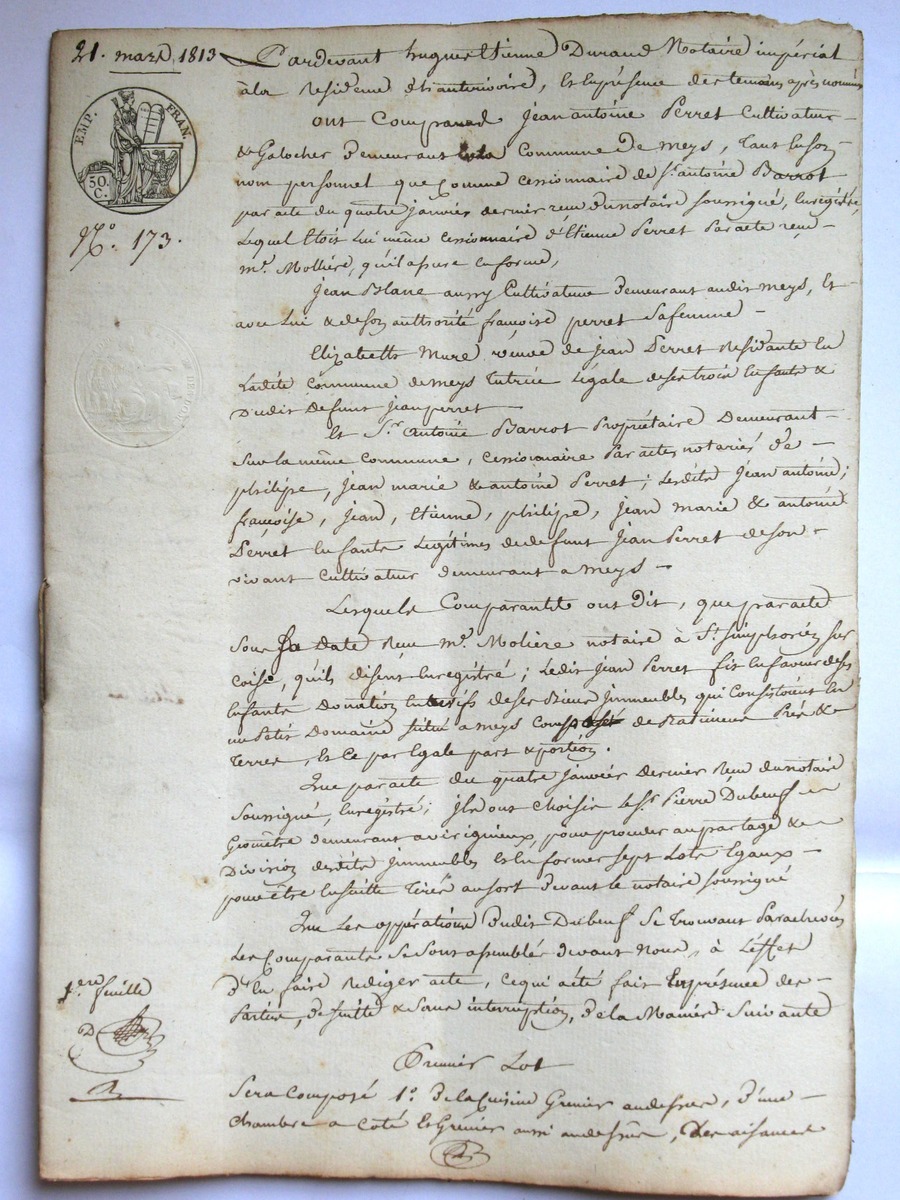 21. mars 1813
EMP. FRAN.
50. C.
N.o 173.
Pardevant hugues Etienne Durand Notaire impérial
à la Residence et en présence des temoins après nommés
ont Comparus Jean antoine Perret Cultivateur
& Galocher Demeurant Commune De meys, Tant En son
nom personnel que Comme cessionnaire de Sr. antoine Barrot
par acte du quatre janvier dernier reçu Dunotaire soussigné, Enregistré,
Lequel Etoit Lui même cessionnaire d'Etienne Perret Par acte reçu
me. Molliere, qu'il assure en forme,
Jean Blanc aussy Cultivateur Demeurant audit meys, Et
avec Lui & de son authorité françoise perret Safemme
Elizabeth Mure veuve de Jean Perret Residante En
Ladite Commune de meys Tutrice Légale deses trois Enfants &
Dudit Defunt jean perret
Et Sr. Antoine Barrot Propriétaire Demeurant
Sur la même Commune, cessionnaire Par actes notariés De
philipe, jean marie & antoine Perret; Lesdits Jean antoine,
françoise, jean, Etienne, philipe, jean marie & antoine
Perret Enfants Légitimes de defunt Jean Perret deson
vivant Cultivateur demeurant a meys
Lesquels Comparants ont Dit, que par acte
Sous Sa Date Reçu me. Moliere notaire à St. Simphorien sur
coise, qu'ils disent Enregistré; Ledit Jean Perret fit En faveur deses
Enfants Donation deses Biens immeubles qui Consistoient En
un Petit Domaine Situé a meys composé de Batimens Prés &
Terres, Et Ce par Egale part & portion.
Que par acte du quatre janvier dernier Reçu dunotaire
Soussigné, Enregistré; ils ont choisir Le Sr. Pierre Dubeuf
Géomêtre demeurant avirignieux, pour proceder au partage &
Division desdits jmmeubles et En former sept Lots Egaux
pour être Ensuitte Tirés au sort devant le notaire soussigné
Que Les oppérations Dudit Dubeuf Se Trouvant Parachevées
Les Comparants Se Sont assemblés devant Nous, à L'effet
D'En faire Rediger acte, Ce qui a été fait En présence des
Parties, De Suitte & Sans interruption, De la Maniere Suivante
Premier Lot
Sera Composé 1o. De la Cuisine Grenier au dessus, D'une
chambre a Coté Et Grenier aussi au dessus, Des aisances
1ere. feuille
D